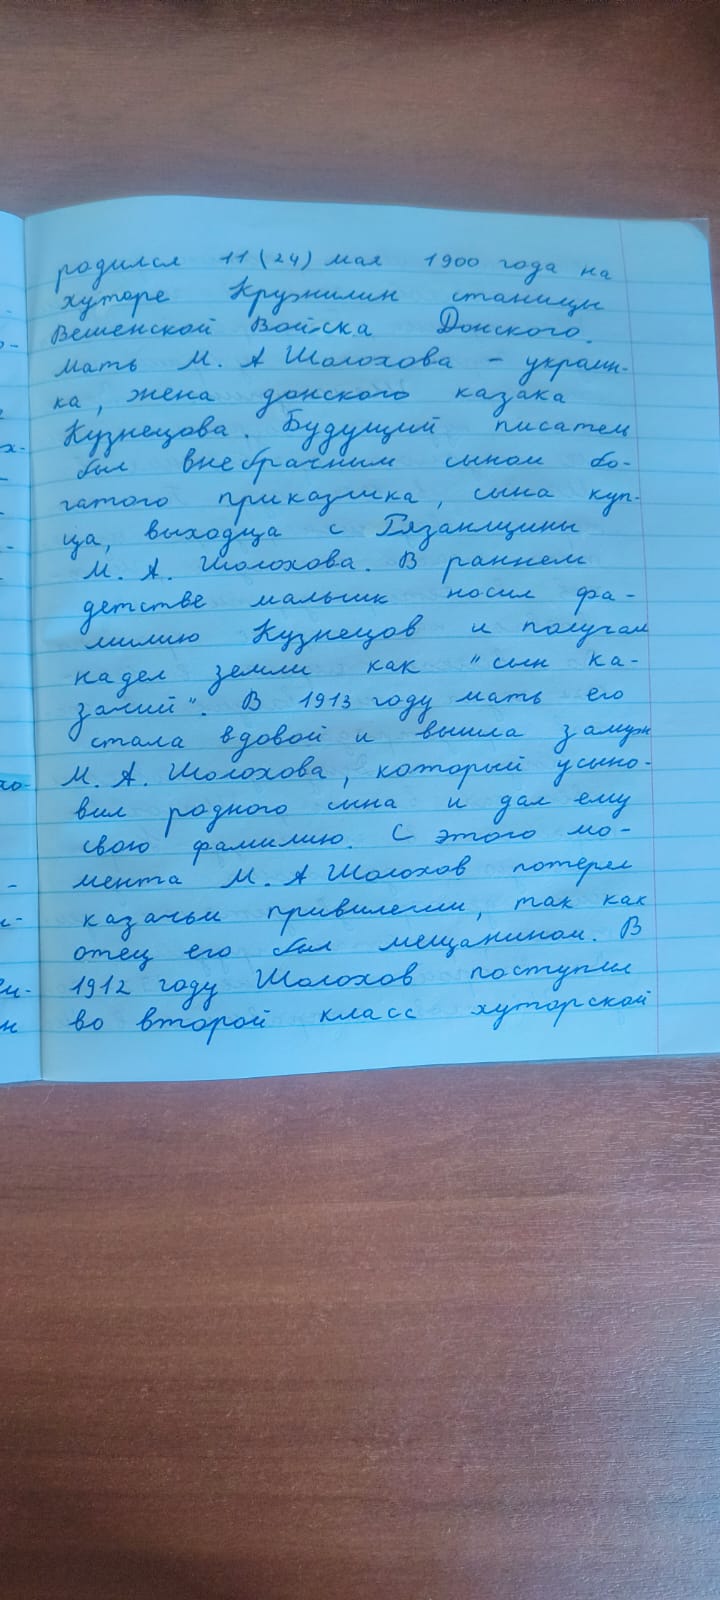 родился 11 (24) мая 1900 года на
хуторе Кружилин станицы
Вешенской Войска Донского.
Мать М. А Шолохова – украин-
ка, жена донского казака
Кузнецова. Будущий писатель
был внебрачным сыном бо-
гатого приказчика, сына куп-
ца, выходца с Рязанщины
М. А. Шолохова. В раннем
детстве мальчик носил фа-
милию Кузнецов и получал
надел земли как "сын ка-
зачий". В 1913 году мать его
стала вдовой и вышла замуж
М. А. Шолохова, который усыно-
вил родного сына и дал ему
свою фамилию. С этого мо-
мента М. А Шолохов потерял
казачьи привилегии, так как
отец его был мещанином. В
1912 году Шолохов поступил
во второй класс хуторской